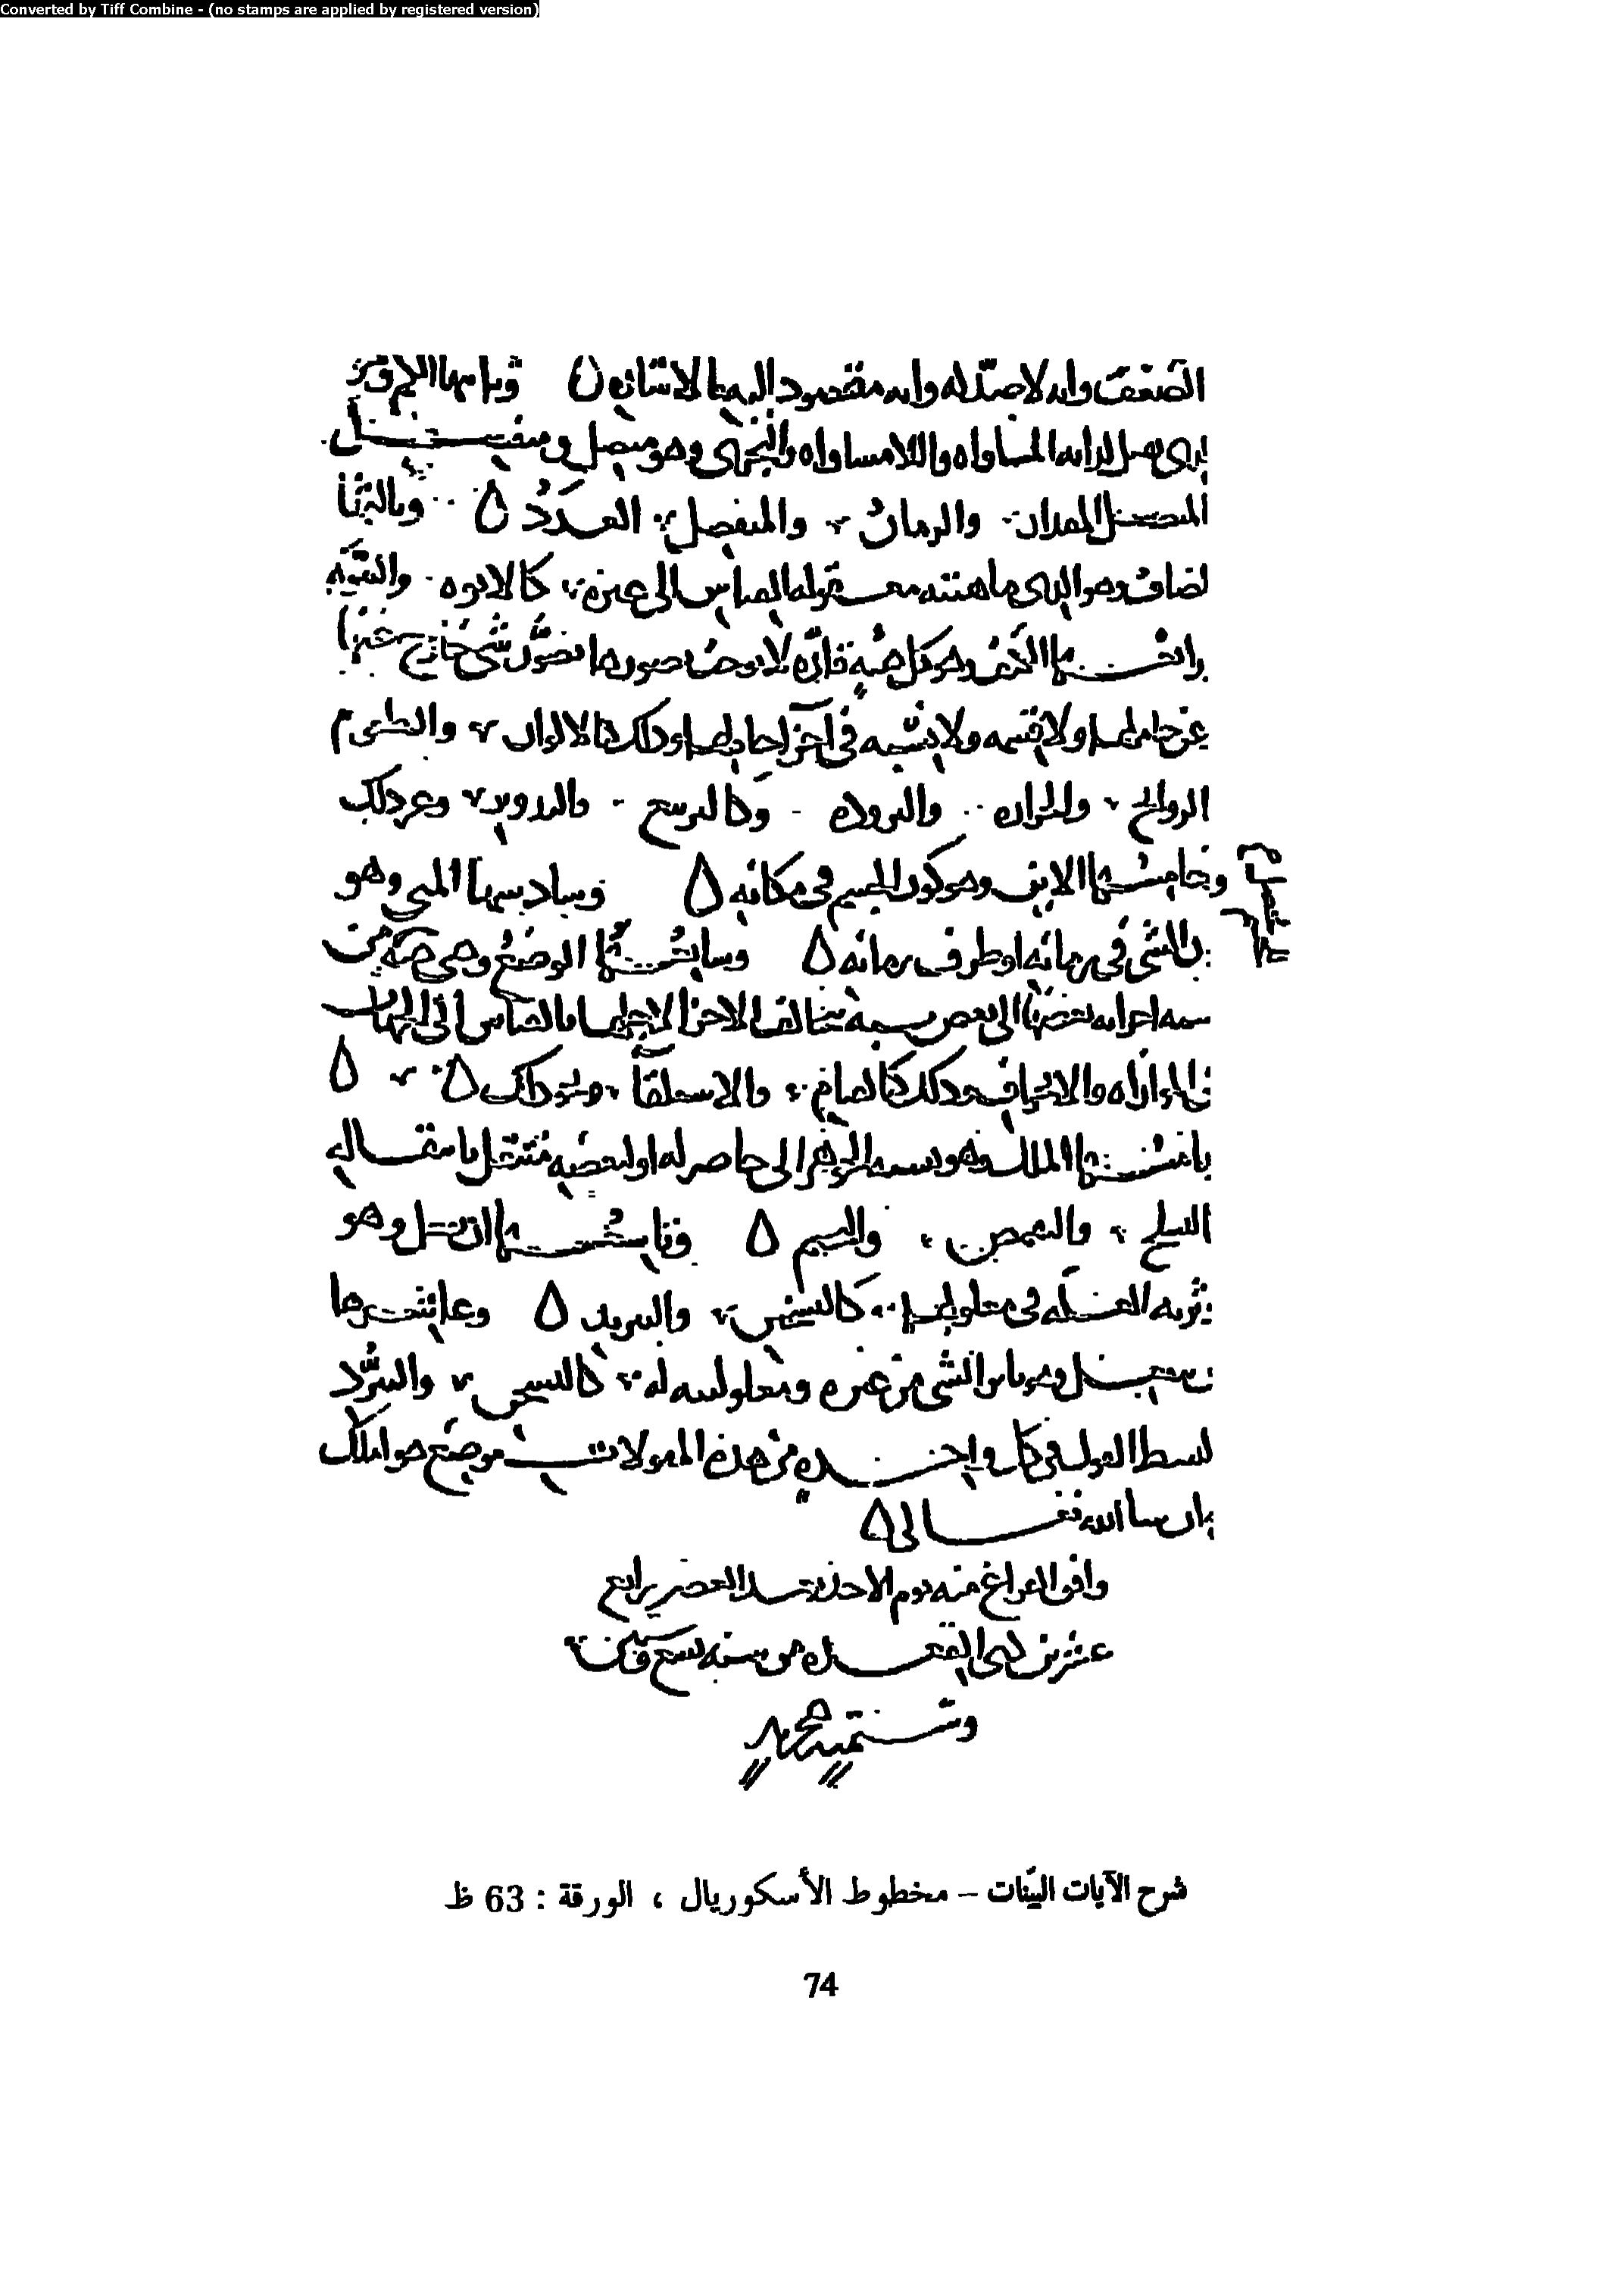 Converted by Tiff Combine - (no stamps are applied by registered version)
الضعف وانه لا ضد له وانه مقصود اليه بالاشارة وثانيها الكم وهو
الذي يقبل لذاته المساواة واللامساواة والتجزي وهو متصل ومنفصل
المتصل المقدار والزمان والمنفصل العدد وثالثها
لمضاف وهو الذي ماهيته معقوله بالقياس الى غيره كالابوه والبنوه
رابعتها الكيف وهو كل هيه قاره لا يوجب تصورها تصور شي خارج عنها
عن حاملها ولا قسمه ولا نسبه في اجزا حاملها وذلك كالالوان والطعوم
الروايح والحراره والبروده وكالتربيع والتدوير وغير ذلك
وخامستها الاين وهو كون الجسم في مكانه وسادسها المتى وهو
كون الشي في زمانه او طرف زمانه وسابعتها الوضع وهي هيه من
نسبه اجزايه بعضها الى بعض نسبه تتخالف الاجزا لاجلها بالقياس الى الجهات
في الموازاه والانحراف وذلك كالقيام والاستلقا ونحو ذلك
ثامنتها الملك وهو نسبه الجوهر الى حاصر له او لبعضه منتقل بانتقاله
التسلح والتقمص والتختم وتاسعتها ان يفعل وهو
تاثير العله في معلولها كالتسخين والتبريد وعاشرتها
ان ينفعل وهو تاثر الشي من غيره ومعلوليته له كالتسخن والتبرد
بسط القول في كل واحده من هذه المقولات موضع هو املك
ان شا الله تعالى
وافق الفراغ منه يوم الاحد بعد العصر رابع
عشرين ذي القعده من سنه تسع وثمنين
وستميه
شرح الآيات البيّنات – مخطوط الأسكوريال ، الورقة : 63 ظ
74